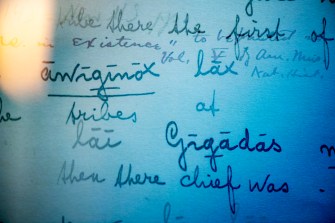 tribe there the first of
in existence" to
Vol. V of Am. Mus.
Nat. Hist.
āwīgīnōx lāx
he tribes at
lāi Gīgādās
then there chief was